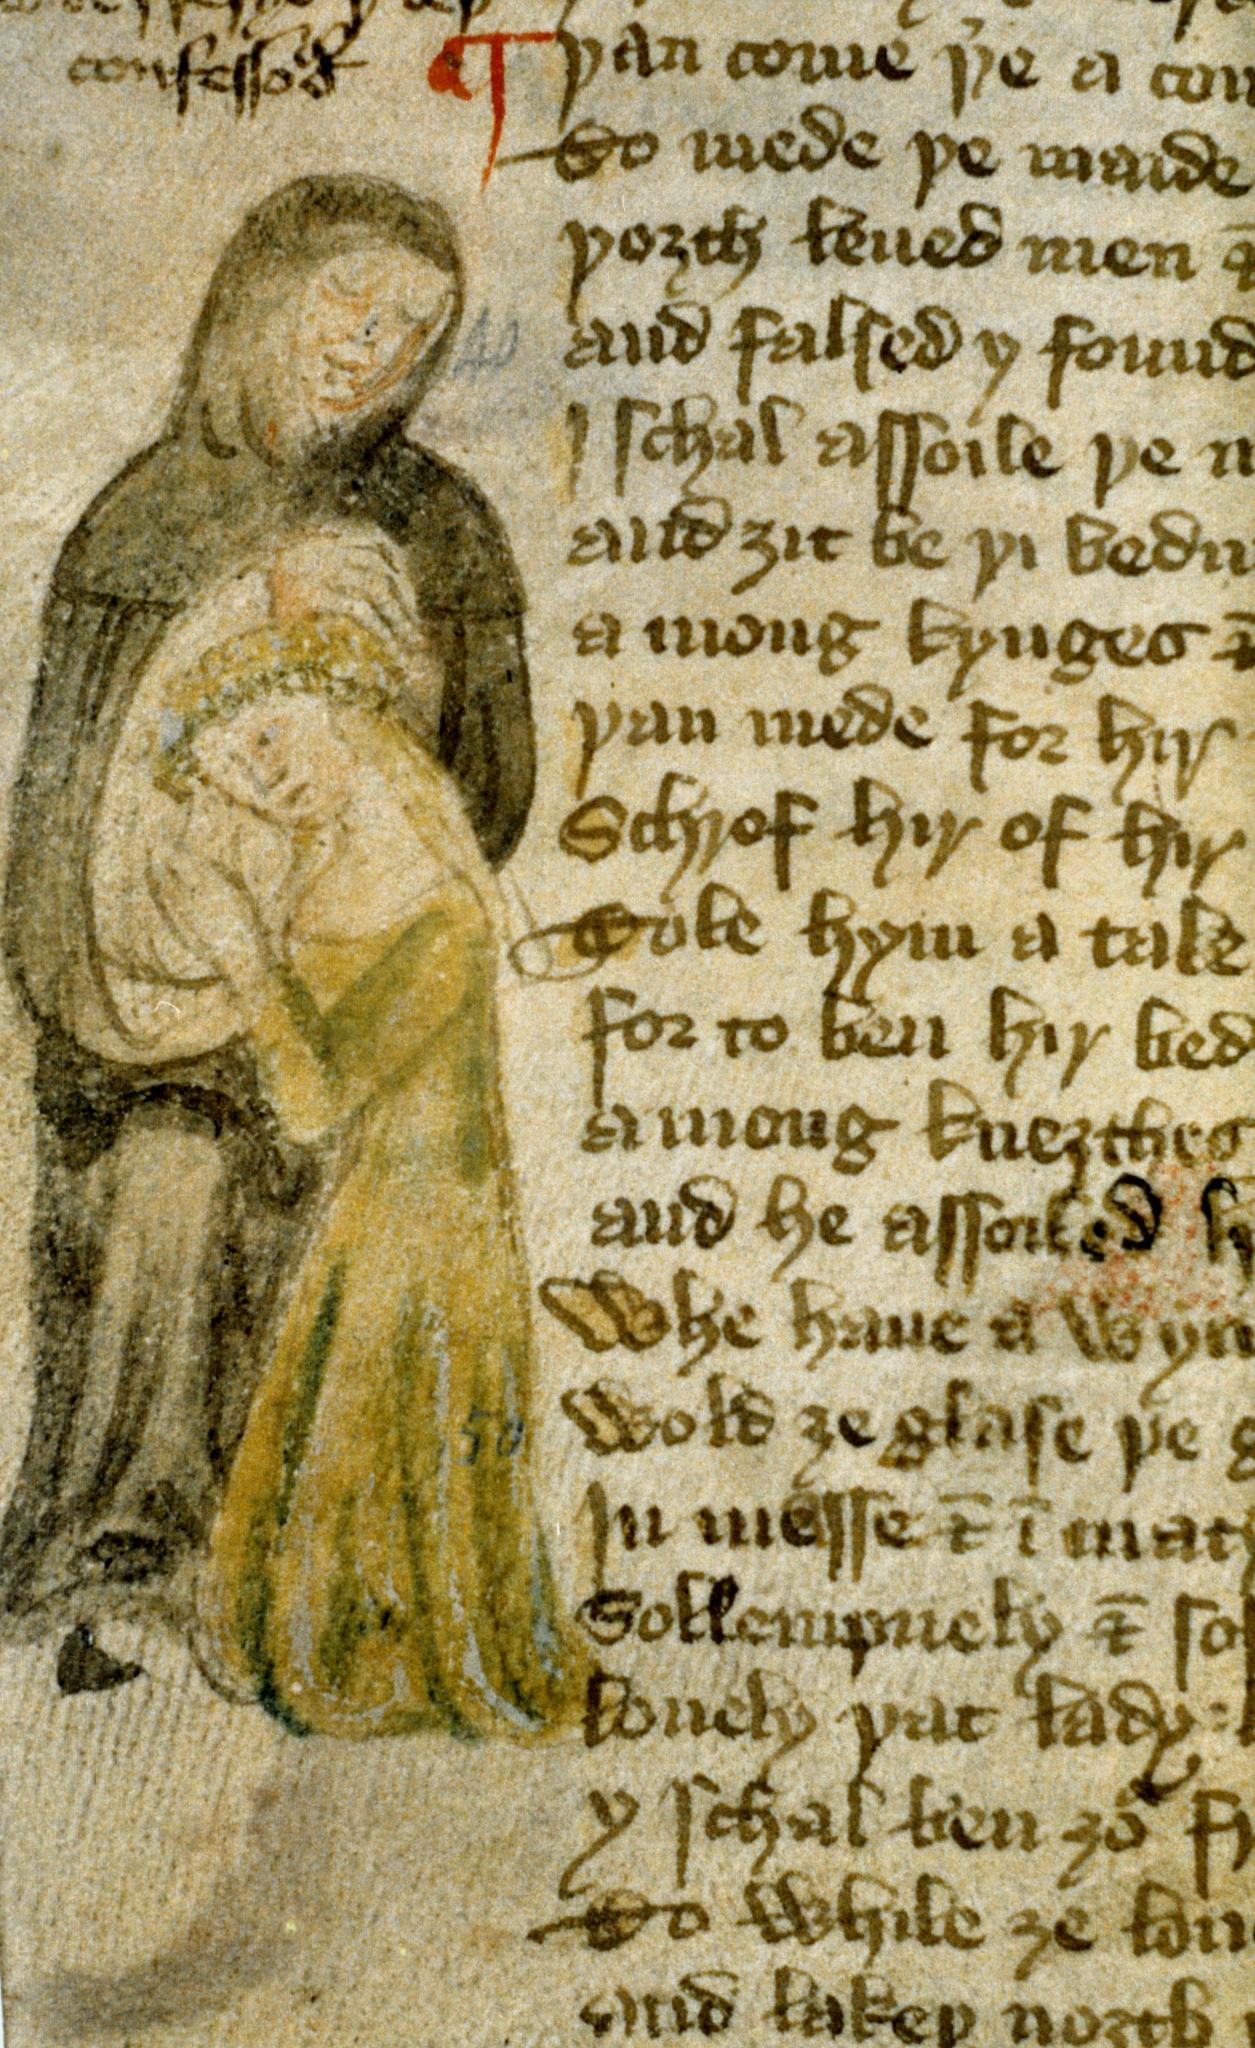 confessor
þan come þer a con
To mede þe maide
þorth lewed men &
and falsed y found
I schal assoile þe
and ȝit be þi bedn
a mong kynges &
þan mede for hir
Schrof hir of hir
Tolde hym a tale
for to ben hir bed
a mong kneȝthes
and he assoiled
Whe haue a wyn
Wold ȝe glase þe g
In messe & ī mat
Sollempnely & sol
louely þat lady
y schal ben ȝor
To while ȝe lou
and lakeþ noȝth